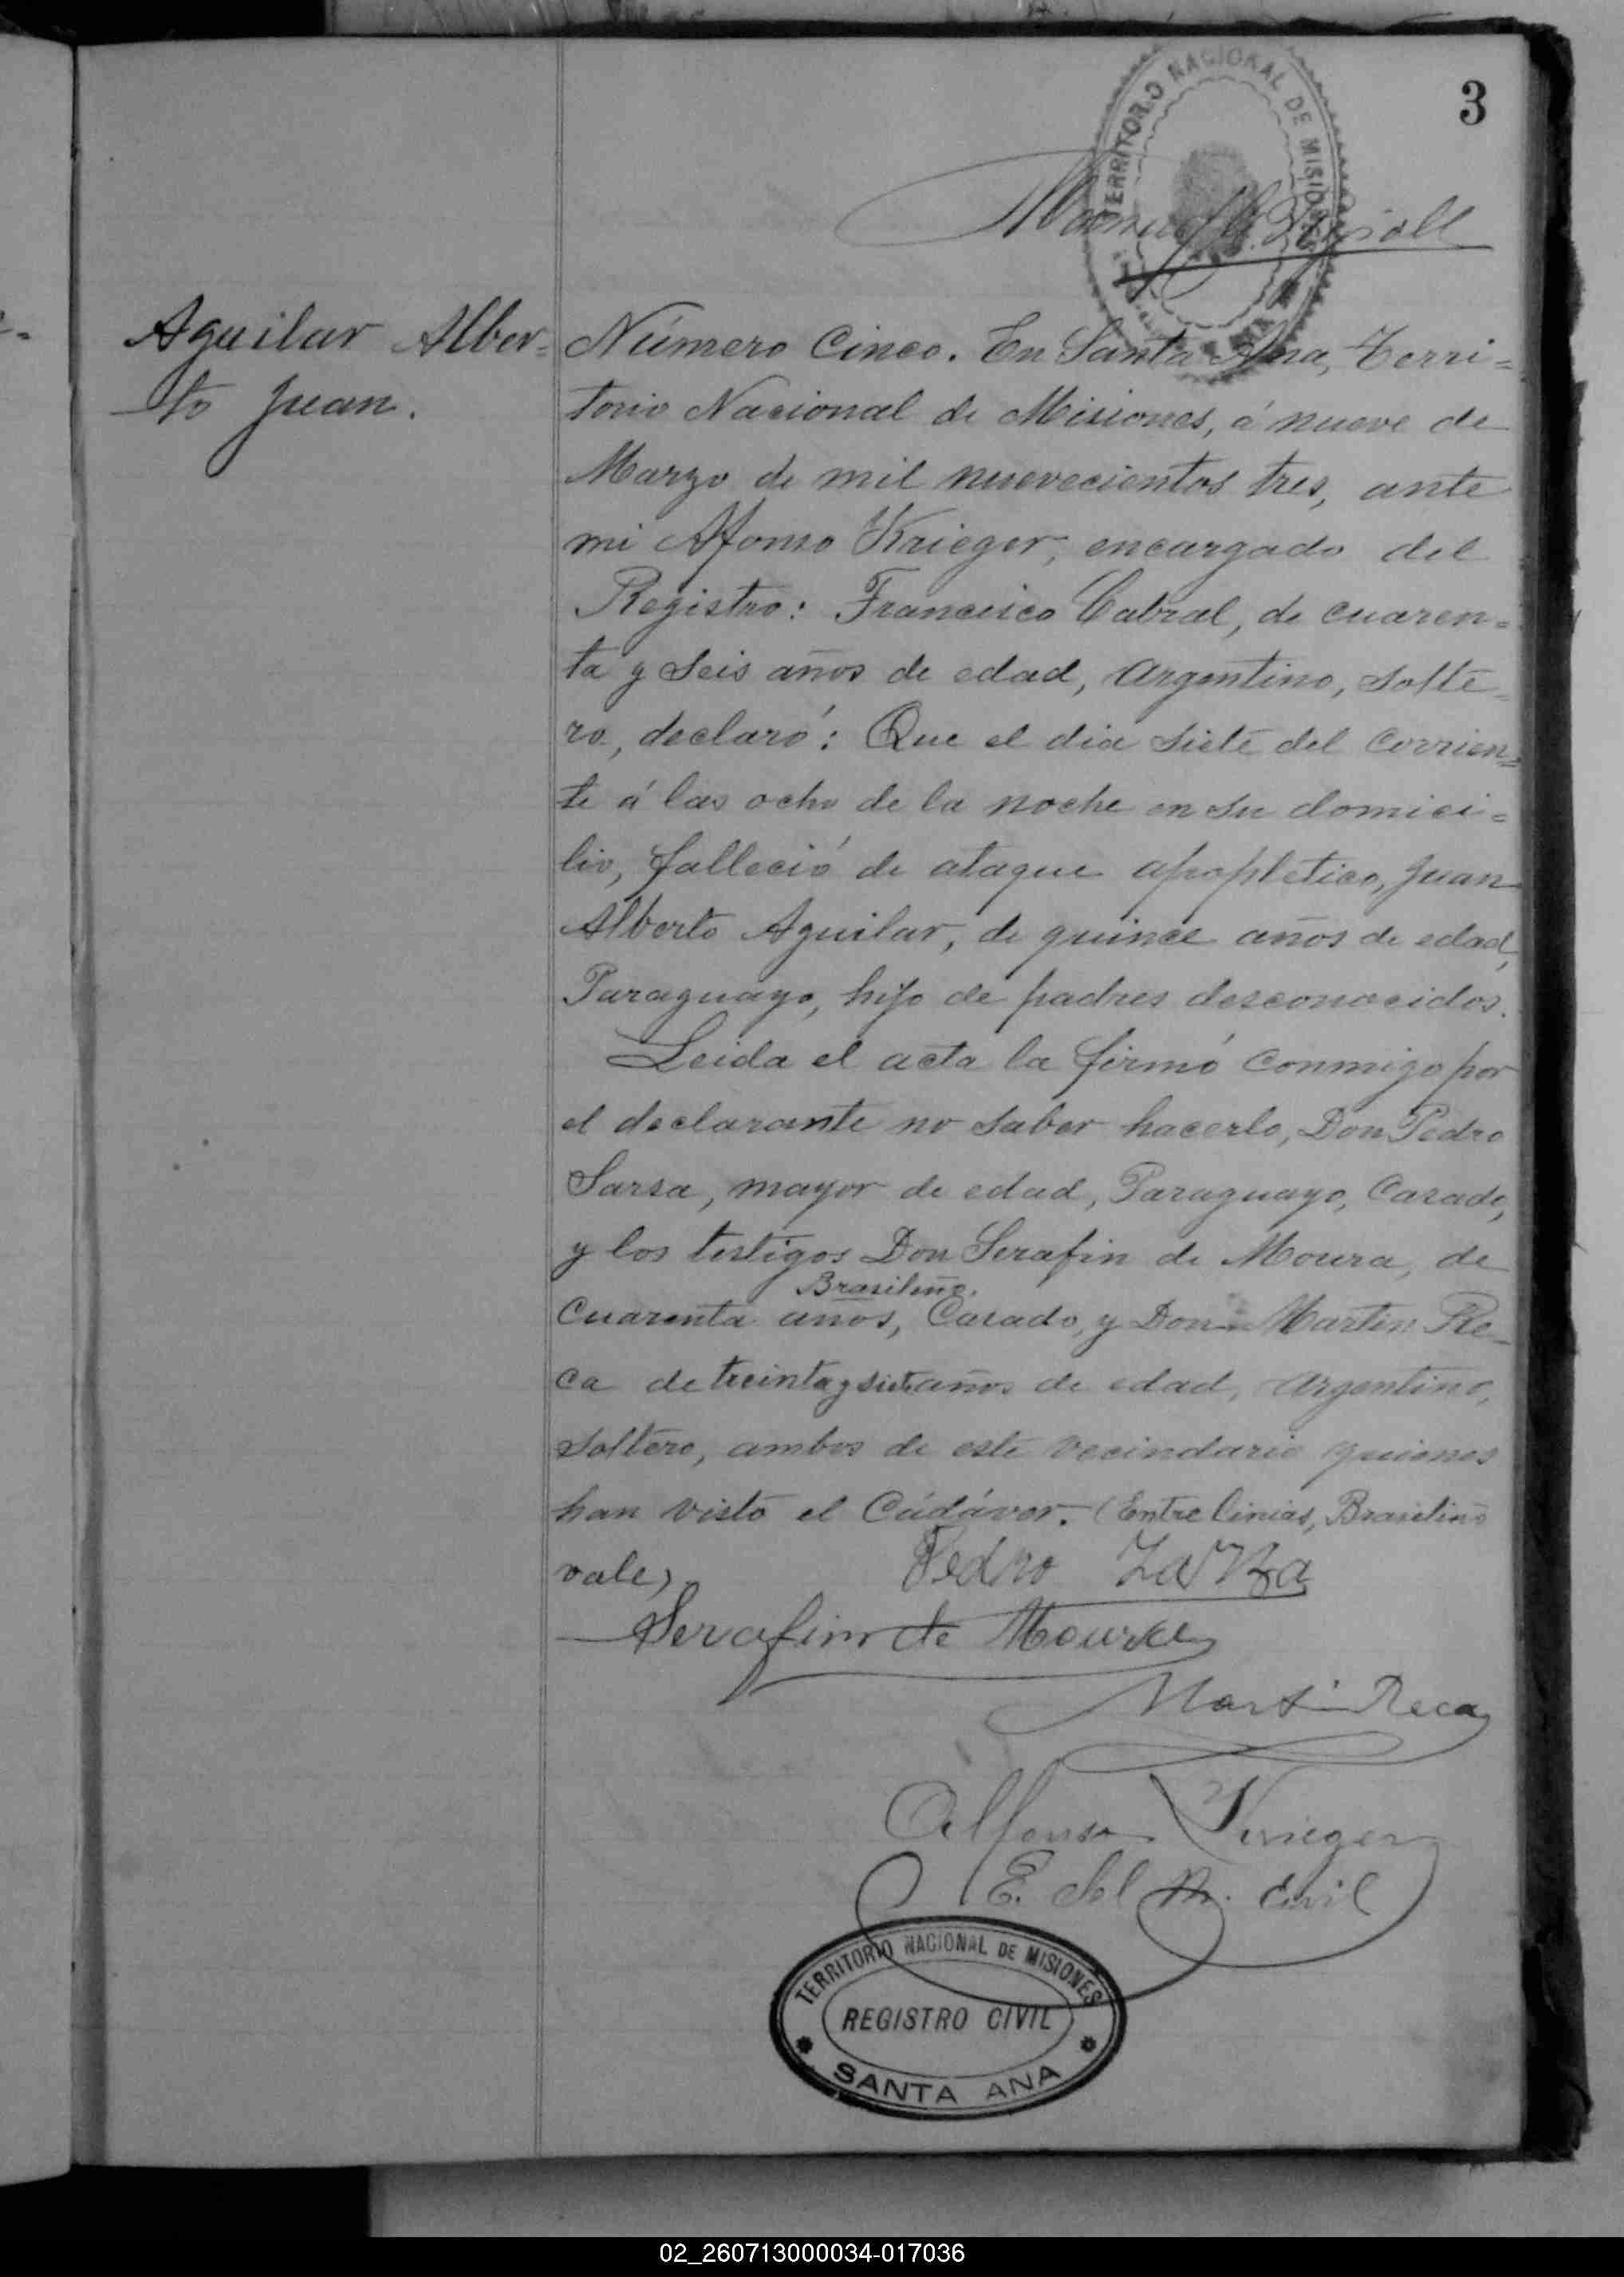 3
TERRITORIO NACIONAL DE MISIONES
Aguilar Alber=
to Juan.
Número Cinco. En Santa Ana, Terri=
torio Nacional de Misiones, á nueve de
Marzo de mil nuevecientos tres, ante
mi Alfonso Krieger, encargado del
Registro: Francisco Cabral, de cuaren=
ta y seis años de edad, Argentino, solte=
ro, declaró: Que el dia siete del corrien=
te á las ocho de la noche en su domici=
lio, falleció de ataque apopletico, Juan
Alberto Aguilar, de quince años de edad,
Paraguayo, hijo de padres desconocidos.
Leida el acta la firmó conmigo por
el declarante no saber hacerlo, Don Pedro
Sarsa, mayor de edad, Paraguayo, Casado,
y los testigos Don Serafin de Moura, de
Brasileño.
Cuarenta años, Casado, y Don Martin Re=
ca de treinta y siete años de edad, Argentino,
soltero, ambos de este vecindario quienes
han visto el Cádáver. (Entre linias, Brasileño
vale)
Pedro Zarza
Serafim de Moura
Martin Reca
Alfonso Krieger
E. del R. Civil
TERRITORIO NACIONAL DE MISIONES
REGISTRO CIVIL
SANTA ANA
02_260713000034-017036